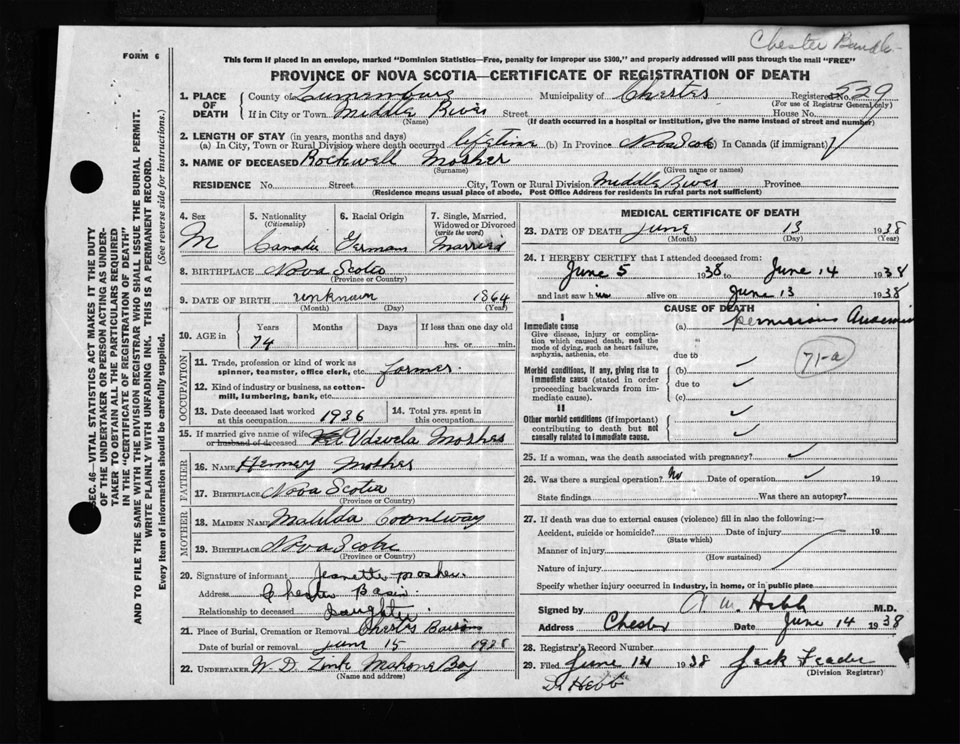 Chester
FORM 6
This form if placed in an envelope, marked "Dominion Statistics—Free, penalty for improper use $300," and properly addressed will pass through the mail "FREE"
PROVINCE OF NOVA SCOTIA—CERTIFICATE OF REGISTRATION OF DEATH
1. PLACE OF DEATH County of Lunenburg Municipality of Chester Registered No. 529
(For use of Registrar General only)
If in City or Town Middle River Street House No.
(Name) (If death occurred in a hospital or institution, give the name instead of street and number)
2. LENGTH OF STAY (in years, months and days)
(a) In City, Town or Rural Division where death occurred lifetime (b) In Province Nova Scotia In Canada (if immigrant)
3. NAME OF DECEASED Rockwell Mosher
(Surname) (Given name or names)
RESIDENCE No. Street City, Town or Rural Division Middle River Province
(Residence means usual place of abode. Post Office Address for residents in rural parts not sufficient)
SEC. 46—VITAL STATISTICS ACT MAKES IT THE DUTY
OF THE UNDERTAKER OR PERSON ACTING AS UNDER-
TAKER TO OBTAIN ALL THE PARTICULARS REQUIRED
IN THE "CERTIFICATE OF REGISTRATION OF DEATH"
AND TO FILE THE SAME WITH THE DIVISION REGISTRAR WHO SHALL ISSUE THE BURIAL PERMIT.
WRITE PLAINLY WITH UNFADING INK. THIS IS A PERMANENT RECORD.
Every item of information should be carefully supplied. (See reverse side for instructions.)
4. Sex M
5. Nationality (Citizenship)
6. Racial Origin German
7. Single, Married, Widowed or Divorced (write the word) Married
8. BIRTHPLACE Nova Scotia
(Province or Country)
9. DATE OF BIRTH unknown 1864
(Month) (Day) (Year)
10. AGE in Years Months Days If less than one day old
74 hrs. or min.
OCCUPATION
11. Trade, profession or kind of work as spinner, teamster, office clerk, etc. farmer
12. Kind of industry or business, as cotton-mill, lumbering, bank, etc.
13. Date deceased last worked at this occupation 1936
14. Total yrs. spent in this occupation
15. If married give name of wife or husband of deceased Udevela Mosher
FATHER
16. NAME Hennery Mosher
17. BIRTHPLACE Nova Scotia
(Province or Country)
MOTHER
18. MAIDEN NAME Matilda
19. BIRTHPLACE Nova Scotia
(Province or Country)
20. Signature of informant Jeanette Mosher
Address Chester Basin
Relationship to deceased Daughter
21. Place of Burial, Cremation or Removal Chester Basin
Date of burial or removal June 15 1938
22. UNDERTAKER W. D. Zink Mahone Bay
(Name and address)
MEDICAL CERTIFICATE OF DEATH
23. DATE OF DEATH June 13 1938
(Month) (Day) (Year)
24. I HEREBY CERTIFY that I attended deceased from:
June 5 1938 to June 14 1938
and last saw him alive on June 13 1938
CAUSE OF DEATH
I
Immediate cause (a) pernicious Anaemia
Give disease, injury or complication which caused death, not the mode of dying, such as heart failure, asphyxia, asthenia, etc.
due to
71-a
Morbid conditions, if any, giving rise to immediate cause (stated in order proceeding backwards from immediate cause).
(b)
due to
(c)
II
Other morbid conditions (if important) contributing to death but not causally related to immediate cause.
25. If a woman, was the death associated with pregnancy?
26. Was there a surgical operation? No Date of operation 19
State findings Was there an autopsy?
27. If death was due to external causes (violence) fill in also the following:
Accident, suicide or homicide? Date of injury 19
(State which)
Manner of injury
(How sustained)
Nature of injury
Specify whether injury occurred in industry, in home, or in public place
Signed by A. W. Hebb M.D.
Address Chester Date June 14 1938
28. Registrar's Record Number
29. Filed June 14 1938 Jack
(Division Registrar)
Dr Hebb